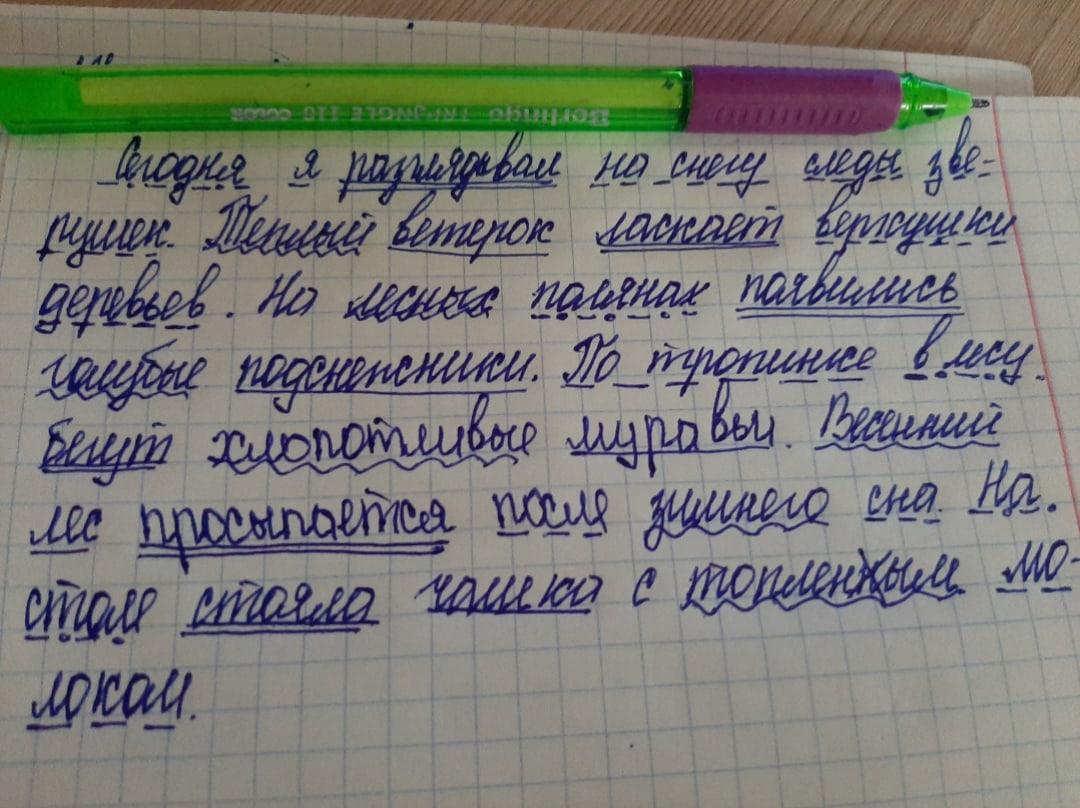 Berlingo TRI-JNGLE 110 COLOR
Сегодня я разглядывал на снегу следы зве-
рушек. Теплый ветерок ласкает верхушки
деревьев. На лесных полянах появились
голубые подснежники. По тропинке в лесу
бегут хлопотливые муравьи. Весенний
лес просыпается после зимнего сна. На
столе стояла чашка с топленым мо-
локом.